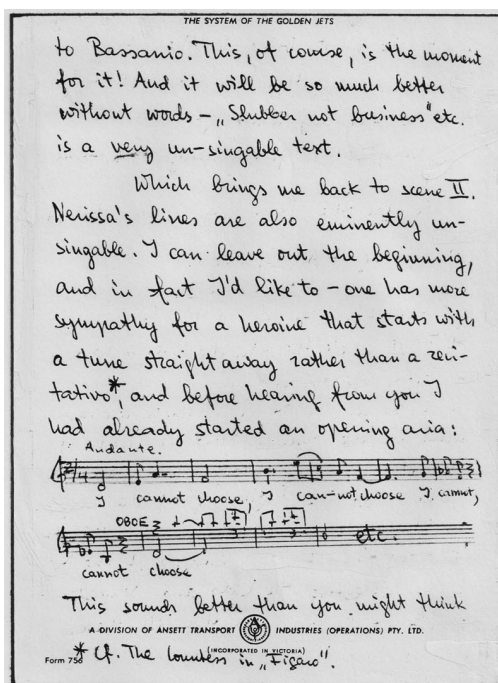 THE SYSTEM OF THE GOLDEN JETS
to Bassanio. This, of course, is the moment
for it! And it will be so much better
without words – „Slubber not business“ etc.
is a very un-singable text.
Which brings me back to scene II.
Nerissa's lines are also eminently un-
singable. I can leave out the beginning,
and in fact I'd like to – one has more
sympathy for a heroine that starts with
a tune straight away rather than a reci-
tativo*, and before hearing from you I
had already started an opening aria:
Andante.
I cannot choose I can-not choose I cannot,
OBOE
etc.
cannot choose
This sounds better than you might think
A DIVISION OF ANSETT TRANSPORT INDUSTRIES (OPERATIONS) PTY. LTD.
(INCORPORATED IN VICTORIA)
Form 756
* Cf. The Countess in „Figaro“.